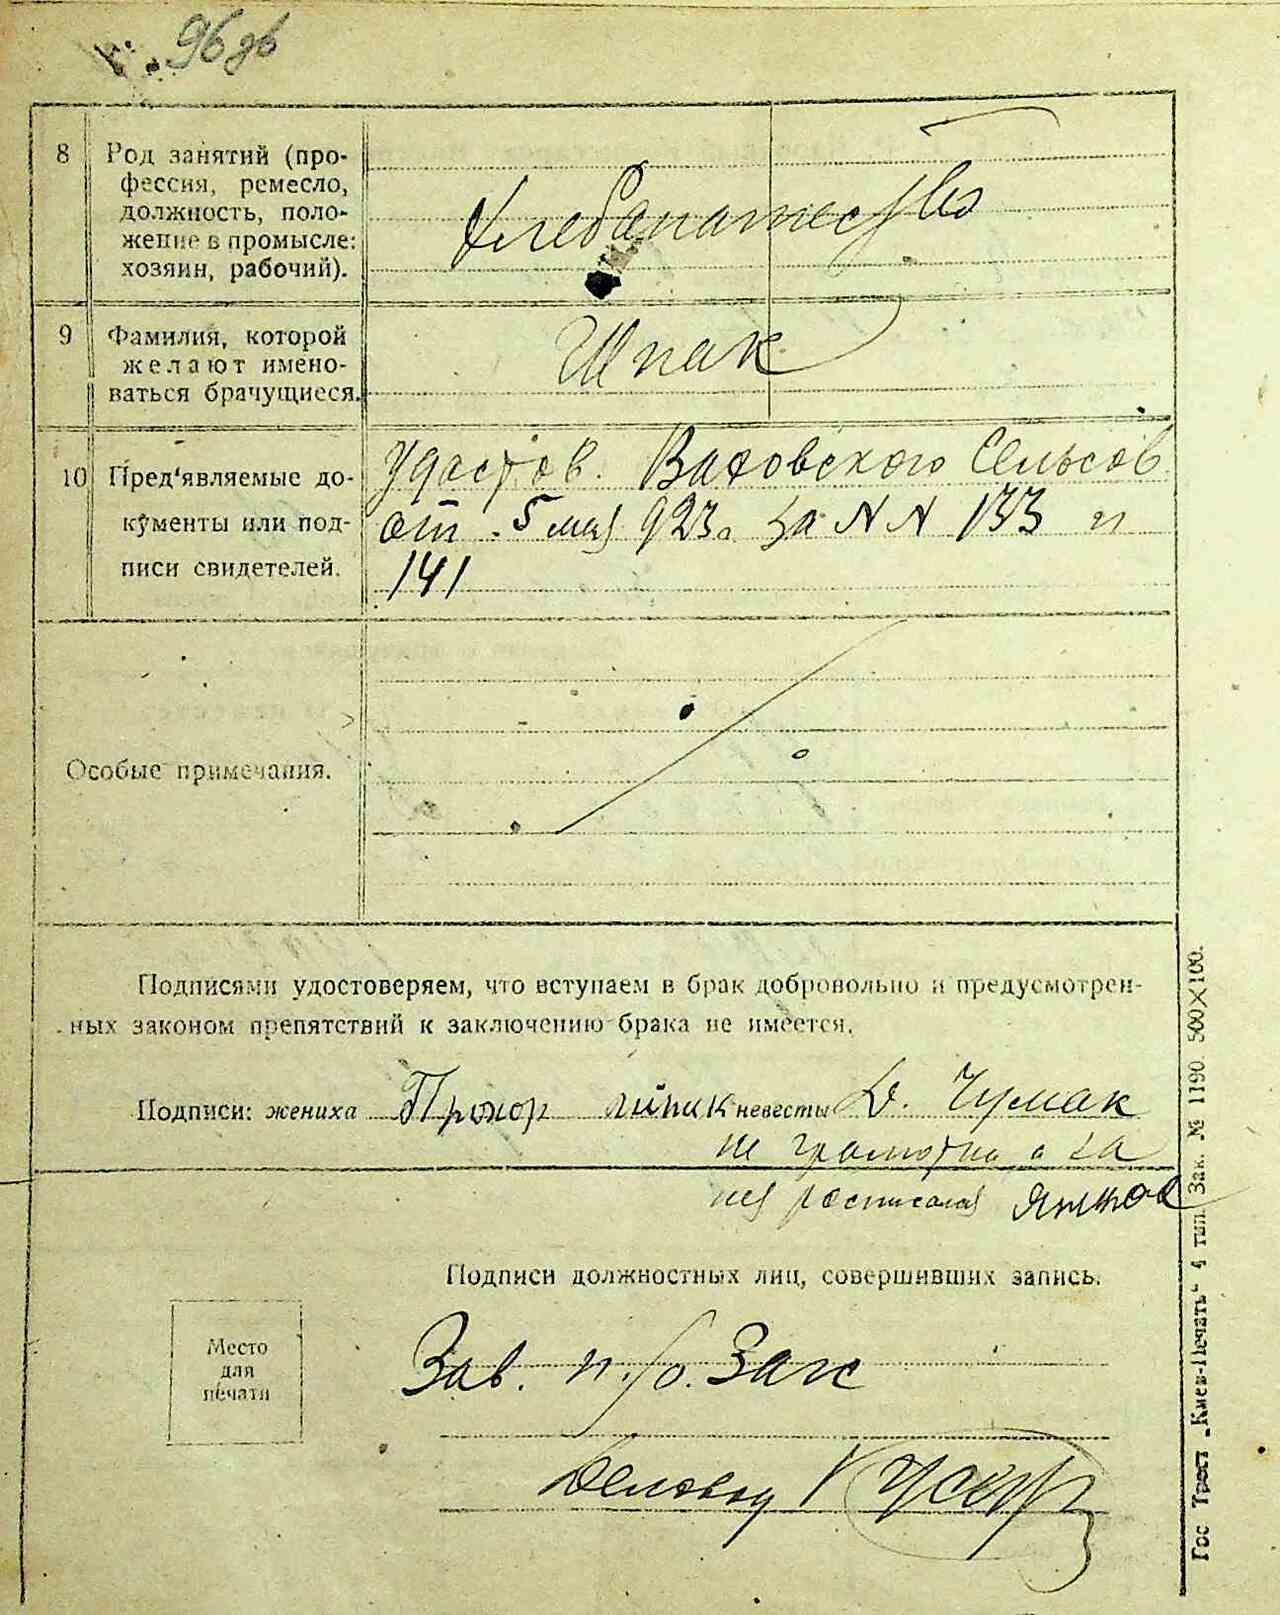 96 зв
8 Род занятий (про-
фессия, ремесло,
должность, поло-
жение в промысле:
хозяин, рабочий).
Хлебапашество
9 Фамилия, которой
желают имено-
ваться брачущиеся.
Шпак
10 Пред'являемые до-
кументы или под-
писи свидетелей.
Удостов. Сельсов
от 5 мая 923 г. за NN 133 и
141
Особые примечания.
Подписями удостоверяем, что вступаем в брак добровольно и предусмотрен-
ных законом препятствий к заключению брака не имеется.
Подписи: жениха Прохор Шпак невесты Д. Чумак
не грамотна а за
нея росписался
Подписи должностных лиц, совершивших запись.
Место
для
печати
Зав. п/о. Загс
Деловод
Гос Трест „Киев-Печать“ 4 тип. Зак. № 1190. 500×100.